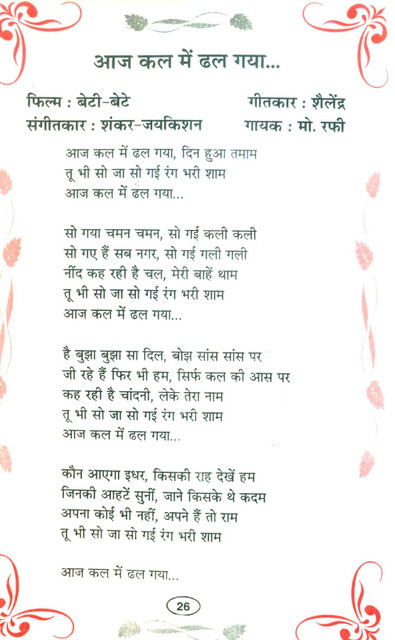 आज कल में ढल गया...
फिल्म : बेटी-बेटे गीतकार : शैलेंद्र
संगीतकार : शंकर-जयकिशन गायक : मो. रफी
आज कल में ढल गया, दिन हुआ तमाम
तू भी सो जा सो गई रंग भरी शाम
आज कल में ढल गया...
सो गया चमन चमन, सो गई कली कली
सो गए हैं सब नगर, सो गई गली गली
नींद कह रही है चल, मेरी बाहें थाम
तू भी सो जा सो गई रंग भरी शाम
आज कल में ढल गया...
है बुझा बुझा सा दिल, बोझ सांस सांस पर
जी रहे हैं फिर भी हम, सिर्फ कल की आस पर
कह रही है चांदनी, लेके तेरा नाम
तू भी सो जा सो गई रंग भरी शाम
आज कल में ढल गया...
कौन आएगा इधर, किसकी राह देखें हम
जिनकी आहटें सुनीं, जाने किसके थे कदम
अपना कोई भी नहीं, अपने हैं तो राम
तू भी सो जा सो गई रंग भरी शाम
आज कल में ढल गया...
26